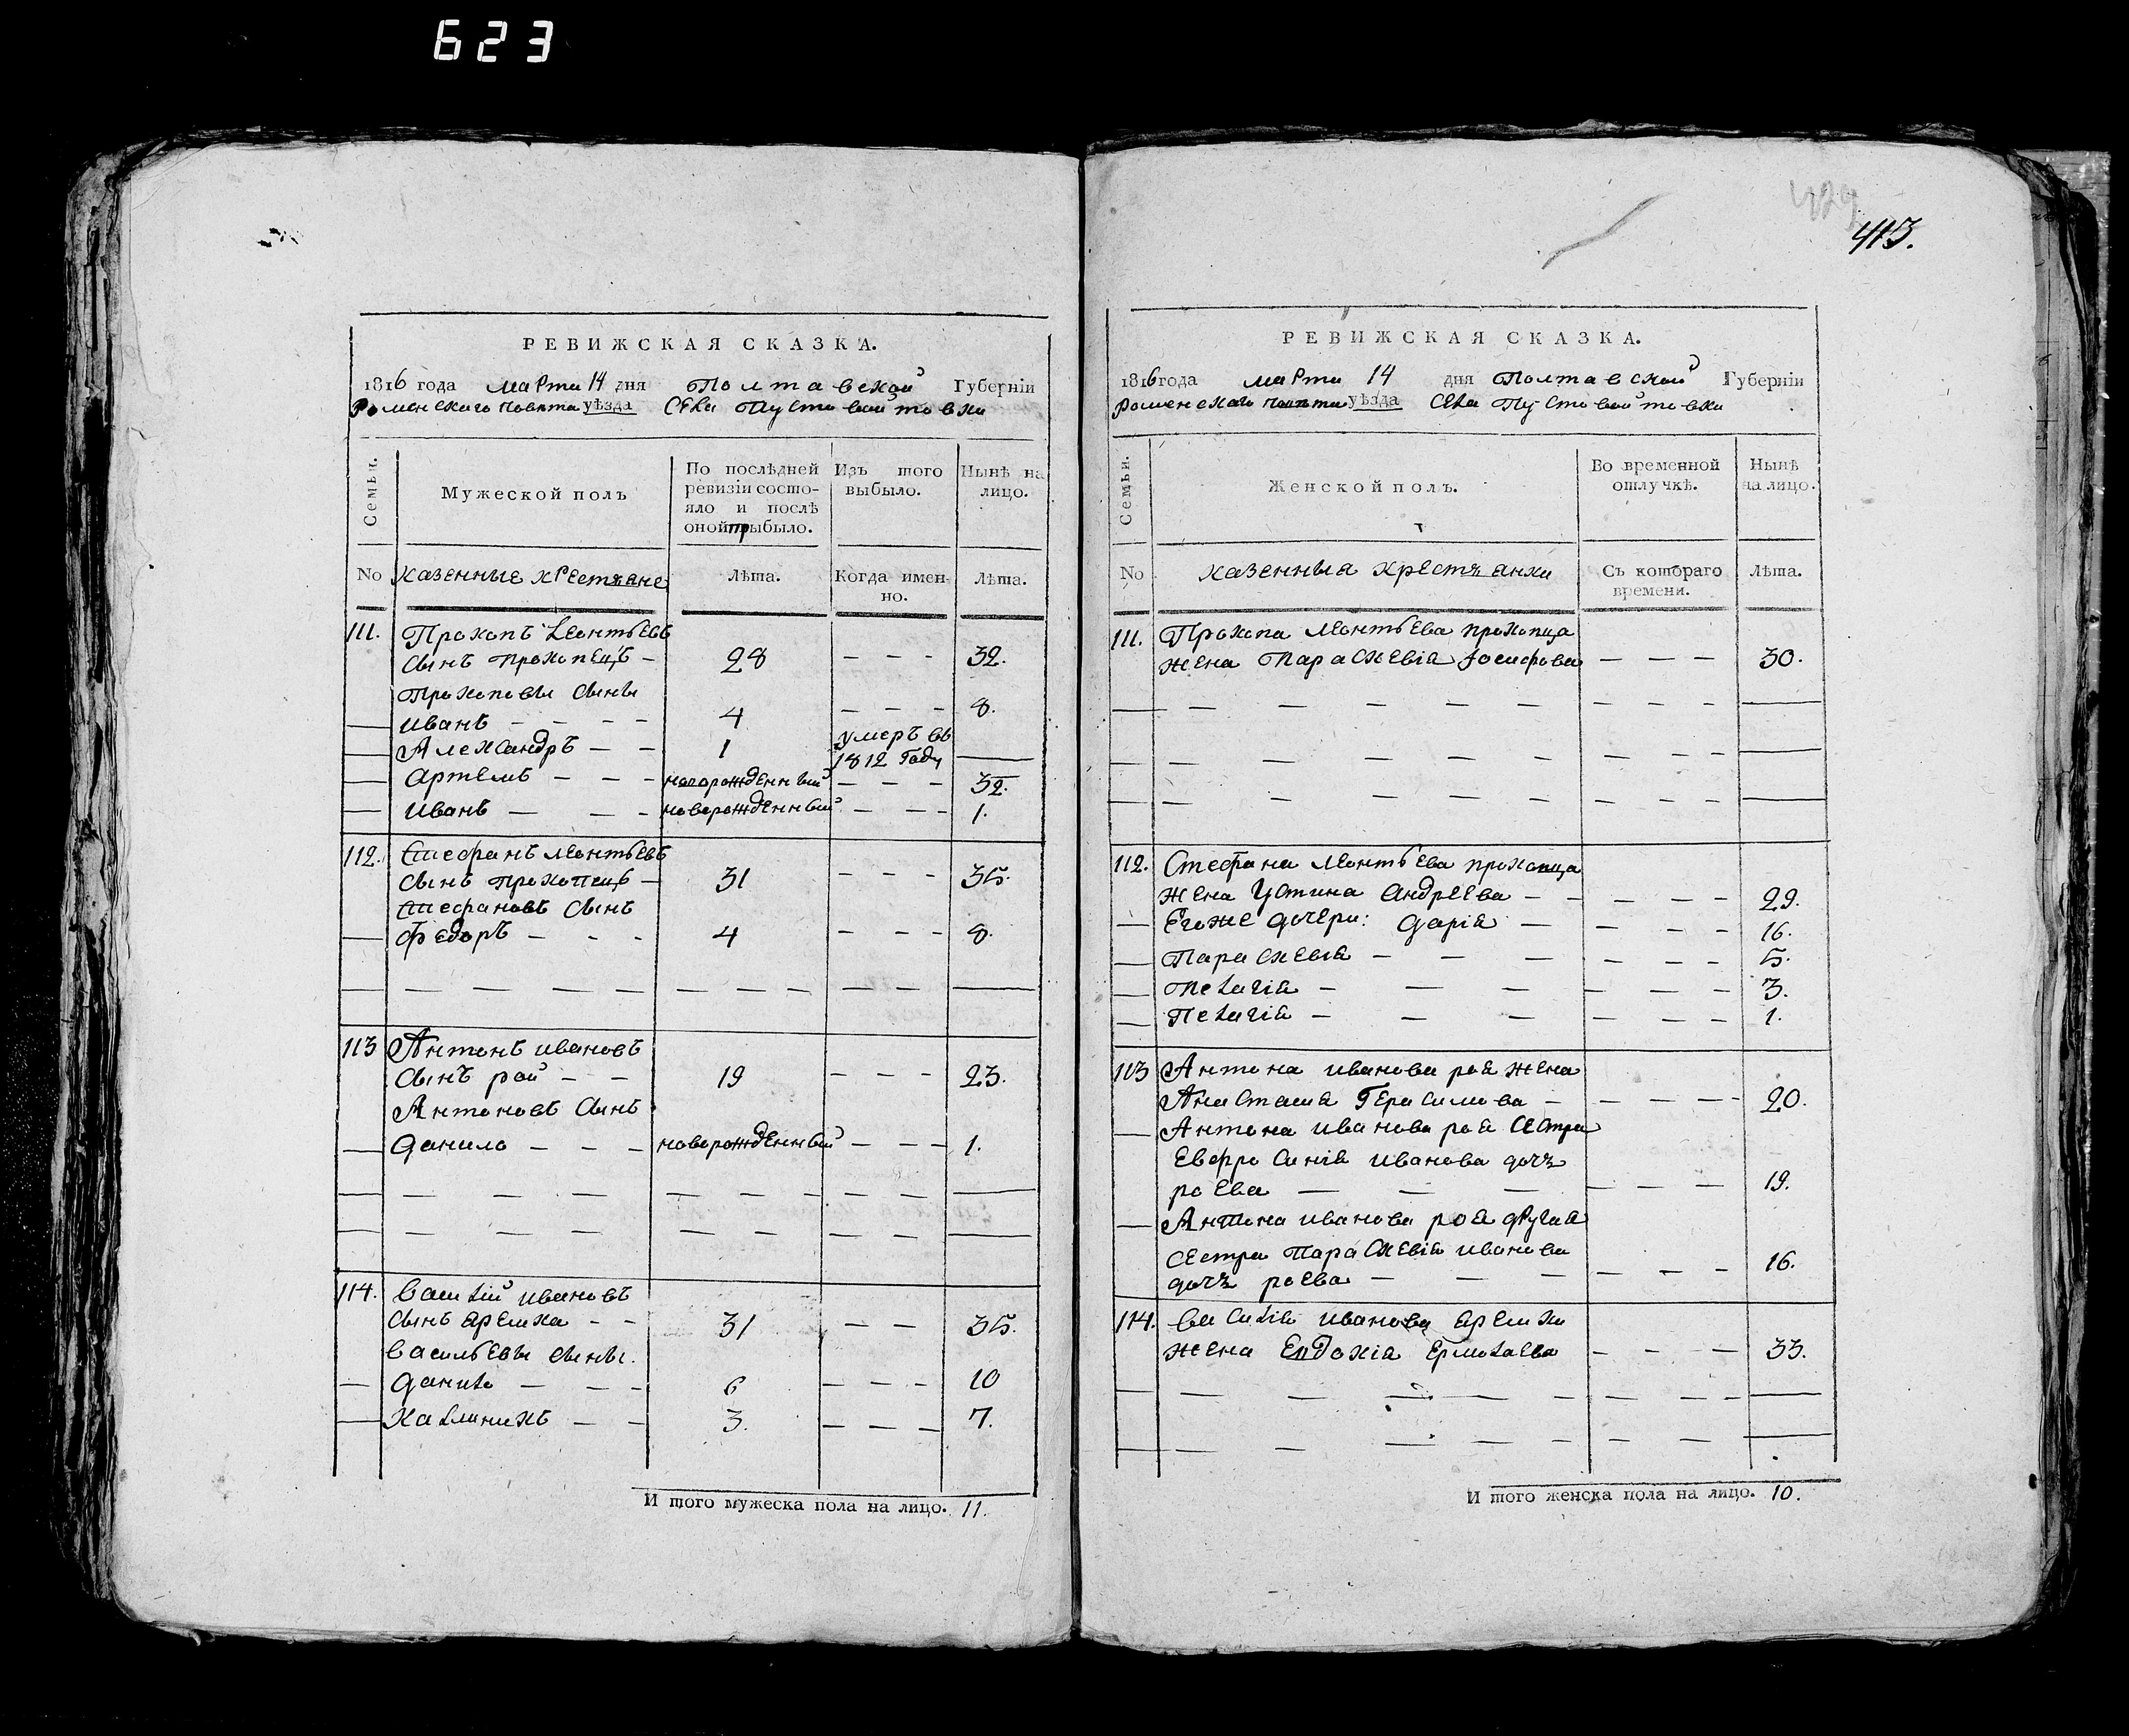 623
РЕВИЖСКАЯ СКАЗКА.
1816 года марта 14 дня Полтавской Губерніи
Роменского повѣта уѣзда села Пустовойтовки
Семьи.
Мужеской полъ
По послѣдней ревизіи состо-
яло и послѣ
оной прибыло.
Изъ того
выбыло.
Нынѣ на
лицо.
No казенные крестьяне лѣта. Когда имен-
но. лѣта.
111. Прокопъ Леонтьевъ
сынъ прокопецъ — 28 — — — 32.
Прокоповы сыны
— иванъ — — — — 4 — — — 8.
— Александръ — — 1 умеръ въ
1812 году —
— артемъ — — — новорожденный — — — 32.
— иванъ — — — новорожденный — — — 1.
112. Стефанъ Леонтьевъ
сынъ прокопецъ — 31 — — — 35.
Стефановъ сынъ
— федоръ — — — 4 — — — 8.
113 Антонъ ивановъ
сынъ рой — — 19 — — — 23.
Антоновъ сынъ
— данило — — — новорожденный — — — 1.
114. василій ивановъ
сынъ яремка — — 31 — — 35.
васильевы сыны.
— данило — — — 6 — — — 10
— калиникъ — — 3. — — — 7.
И того мужеска пола на лицо. 11.
413.
РЕВИЖСКАЯ СКАЗКА.
1816 года марта 14 дня Полтавской Губерніи
Роменского повѣта уѣзда села Пустовойтовки
Семьи.
Женской полъ.
Во временной
отлучкѣ.
Нынѣ
на лицо.
No казенныя крестьянки Съ котораго
времени. лѣта.
111. Прокопа Леонтьева прокопца
жена Параскевія Іосифова — — — 30.
112. Стефана Леонтьева прокопца
жена Устина Андреева — — — — — 29.
— Его же дочери: Дарія — — — — 16.
— Параскевія — — — — — — 5.
— Пелагія — — — — — — 3.
— Пелагія — — — — — — 1.
113 Антона иванова роя жена
Анастасия Герасимова — — — — — 20.
— Антона иванова роя сестра
Евфросинія иванова дочъ
роева — — — — — — 19.
— Антона иванова роя другая
сестра Параскевія иванова
дочъ роева — — — — — — 16.
114. василія иванова яремки
жена Евдокія Ермолаева — — — 33.
И того женска пола на лицо. 10.